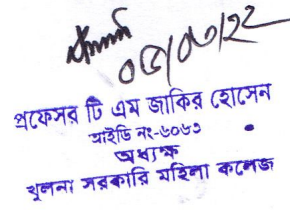 ০৫/০৩/২২
প্রফেসর টি এম জাকির হোসেন
আইডি নং-৬০৬৩
অধ্যক্ষ
খুলনা সরকারি মহিলা কলেজ